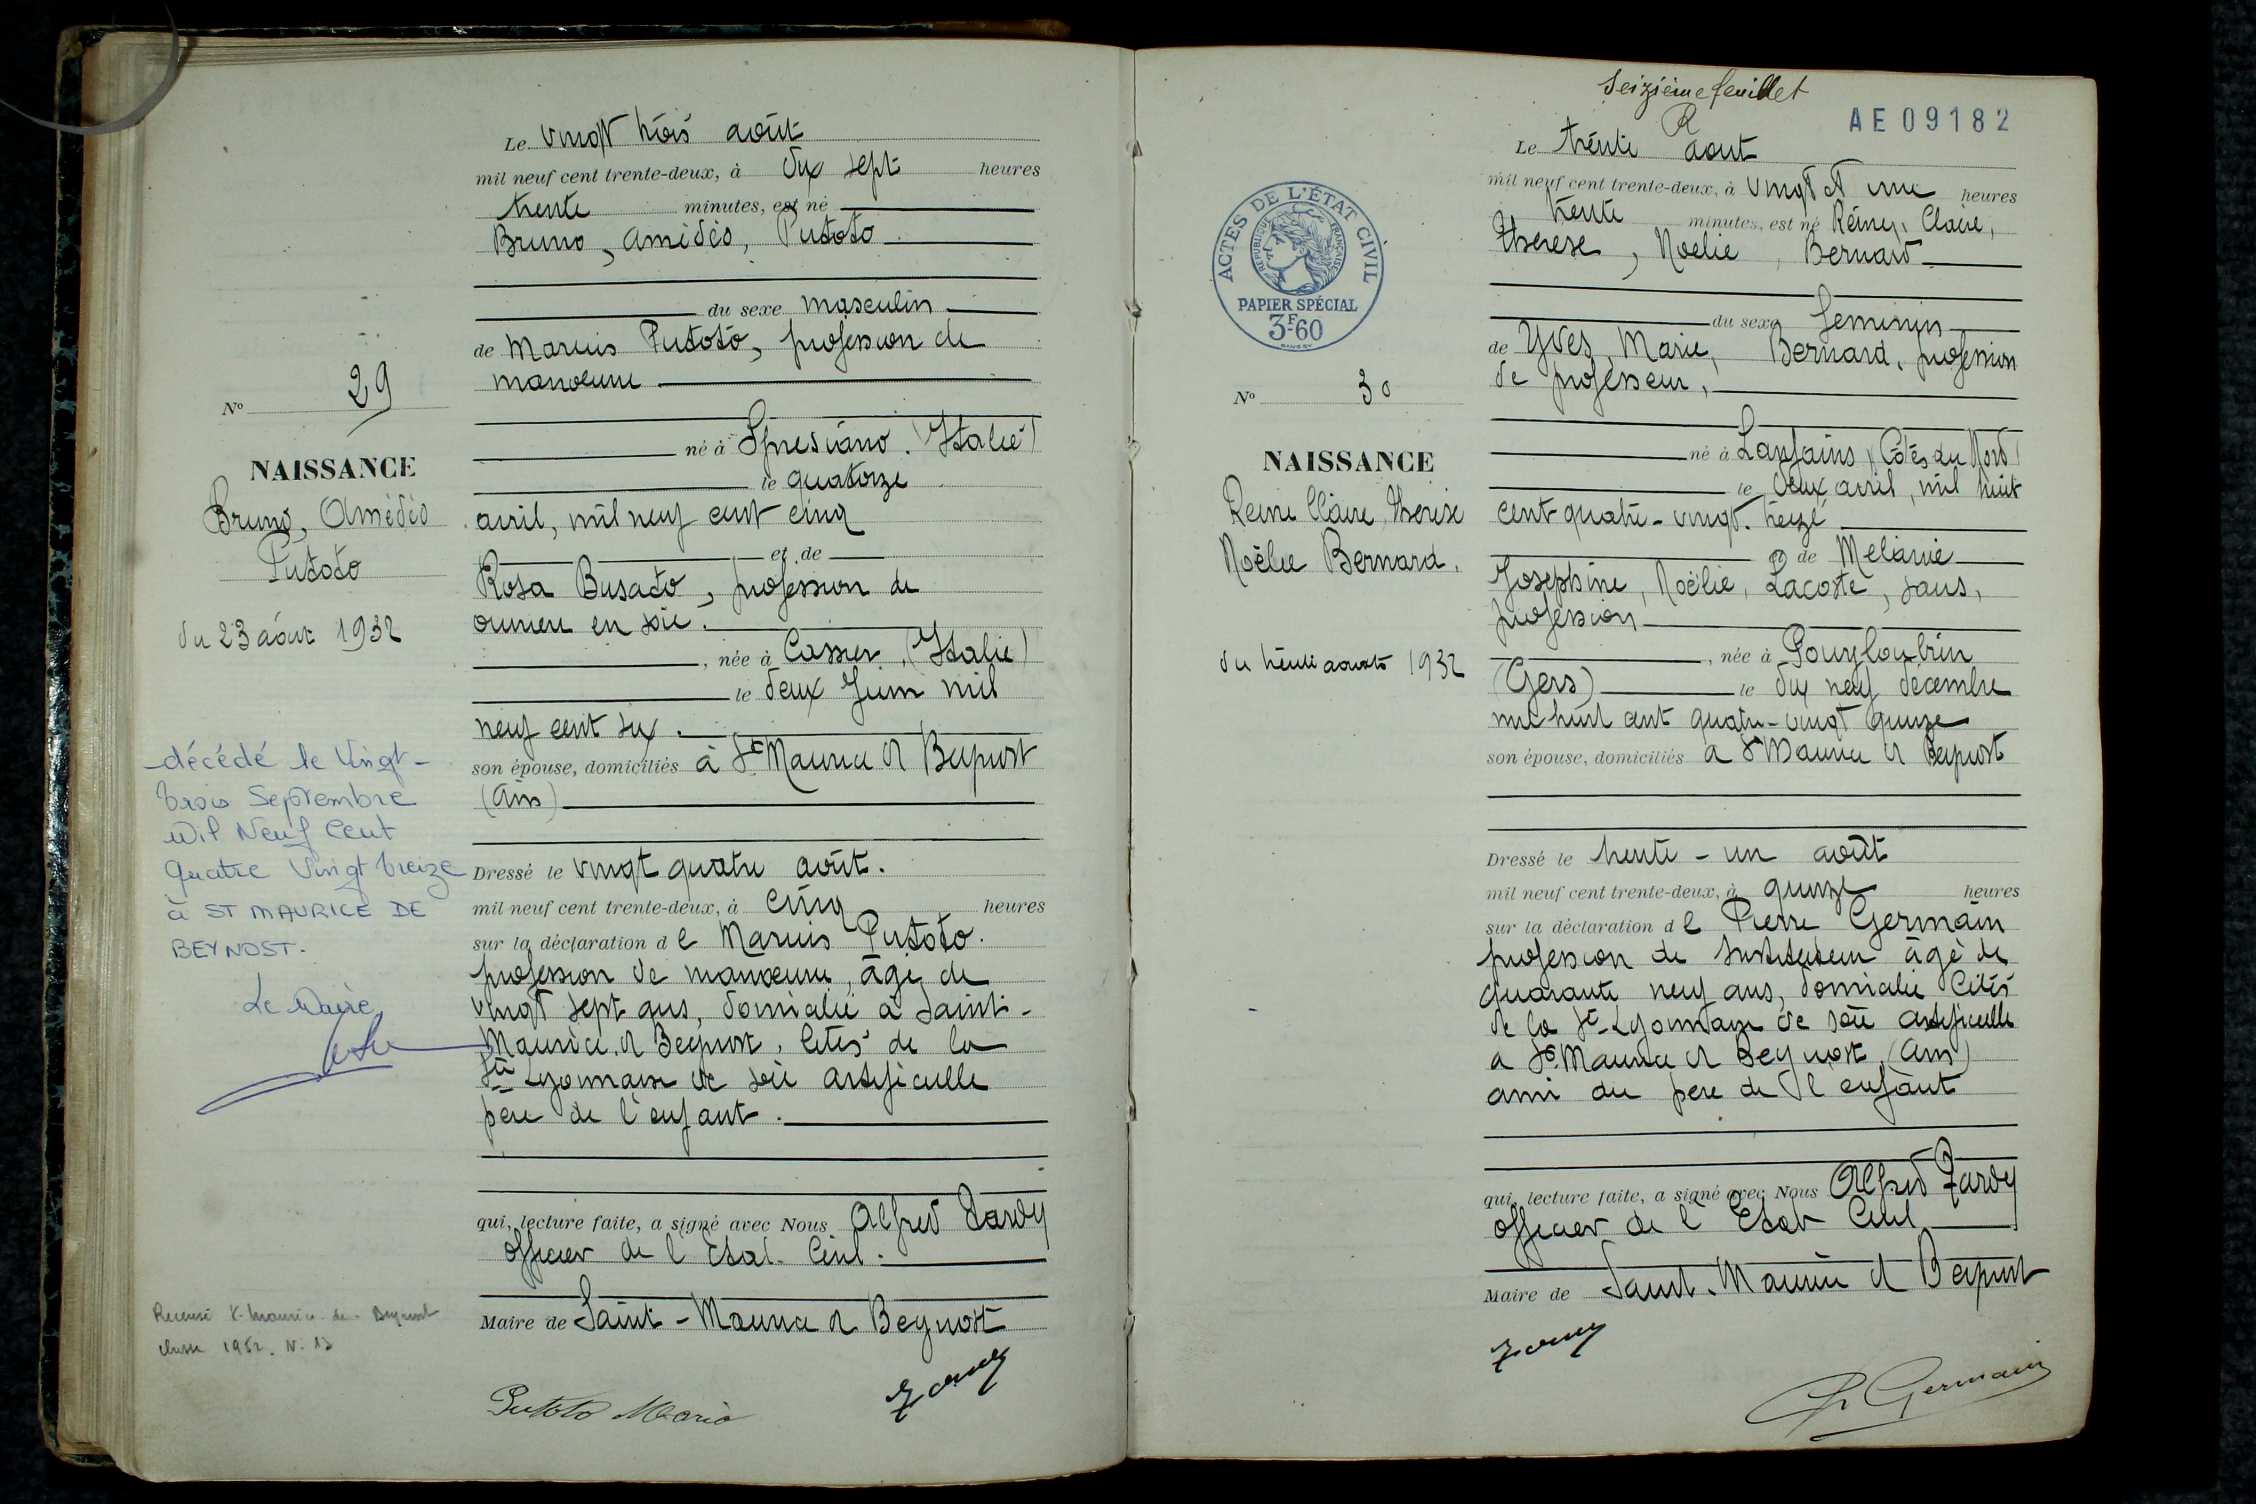 Le vingt trois août
mil neuf cent trente-deux, à dix sept heures
trente minutes, est né
Bruno, Amédéo, Putoto
du sexe masculin
de Marius Putoto, profession de
manoeuvre
né à Spresiano. (Italie)
le quatorze
avril, mil neuf cent cinq
et de
Rosa Busato, profession de
ouvrière en soie.
, née à Casier, (Italie)
le deux Juin mil
neuf cent six.
son épouse, domiciliés à St Maurice de Beynost
(Ain)
Dressé le vingt quatre août.
mil neuf cent trente-deux, à cinq heures
sur la déclaration de Marius Putoto.
profession de manoeuvre, âgé de
vingt sept ans, domicilié à Saint-
Maurice de Beynost, Cités de la
Sté Lyonnaise de soie artificielle
père de l'enfant.
qui, lecture faite, a signé avec Nous Alfred Tardy
officier de l'Etat-Civil.
Maire de Saint-Maurice de Beynost
Putoto Mario
No 29
NAISSANCE
Bruno, Amédéo
Putoto
du 23 août 1932
décédé le Vingt-
trois Septembre
Mil Neuf Cent
Quatre Vingt treize
à ST MAURICE DE
BEYNOST.
Le Maire
Recensé St-Maurice-de-Beynost
classe 1952. N.
Seizième feuillet
AE 09182
Le trente août
mil neuf cent trente-deux, à vingt et une heures
trente minutes, est né Reine, Claire,
Therese, Noelie, Bernard
du sexe feminin
de Yves, Marie, Bernard, profession
de professeur,
né à Lanfains (Côtes du Nord)
le deux avril, mil huit
cent quatre-vingt-treize
et de Melanie
Josephine, Noëlie, Lacoste, sans,
profession
, née à Pouyloubrin
(Gers) le dix neuf décembre
mil huit cent quatre-vingt quinze
son épouse, domiciliés à St Maurice de Beynost
Dressé le trente-un août
mil neuf cent trente-deux, à quinze heures
sur la déclaration de Pierre Germain
profession de Instituteur âgé de
quarante neuf ans, domicilié Cités
de la Sté Lyonnaise de soie artificielle
a St Maurice de Beynost, (Ain)
ami du père de l'enfant
qui, lecture faite, a signé avec Nous Alfred Tardy
officier de l'Etat Civil
Maire de Saint-Maurice de Beynost
Germain
ACTES DE L'ÉTAT CIVIL
RÉPUBLIQUE FRANÇAISE
PAPIER SPÉCIAL
3F60
No 30
NAISSANCE
Reine Claire, Therese
Noëlie Bernard.
du trente août 1932